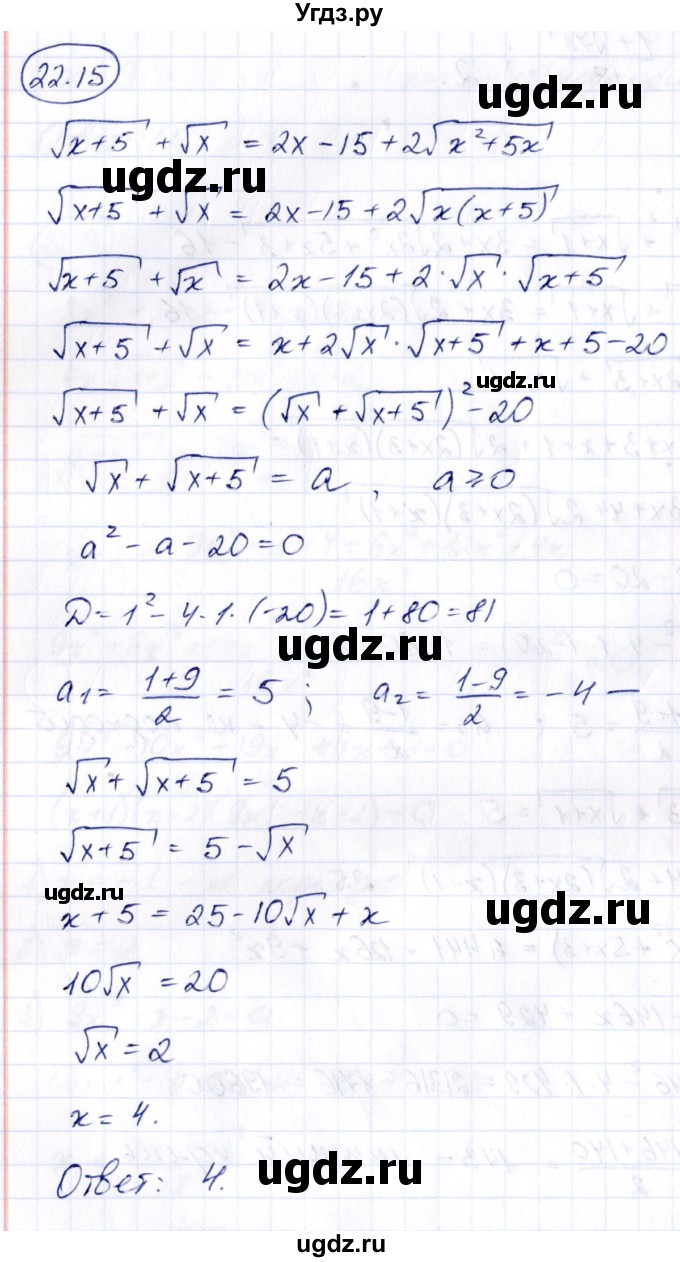 Угдз.ру
22.15
ugdz.ru
√(x+5) + √x = 2x - 15 + 2√(x²+5x)
ugdz.ru
√(x+5) + √x = 2x - 15 + 2√(x(x+5))
√(x+5) + √x = 2x - 15 + 2·√x·√(x+5)
√(x+5) + √x = x + 2√x·√(x+5) + x + 5 - 20
ugdz.ru
√(x+5) + √x = (√x + √(x+5))² - 20
√x + √(x+5) = a, a ⩾ 0
a² - a - 20 = 0
D = 1² - 4·1·(-20) = 1 + 80 = 81
ugdz.ru
a₁ = (1+9)/2 = 5; a₂ = (1-9)/2 = -4 —
√x + √(x+5) = 5
√(x+5) = 5 - √x
ugdz.ru
x + 5 = 25 - 10√x + x
ugdz.ru
10√x = 20
√x = 2
x = 4.
Ответ: 4.
ugdz.ru
ugdz.ru